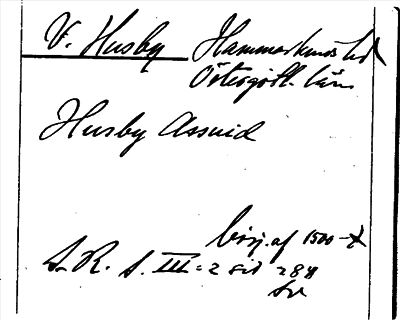 V. Husby Hammarkinds hd
Östergötl. län
Husby Assuid
börj. af 1500-t
S. R. S. III:2 sid 288